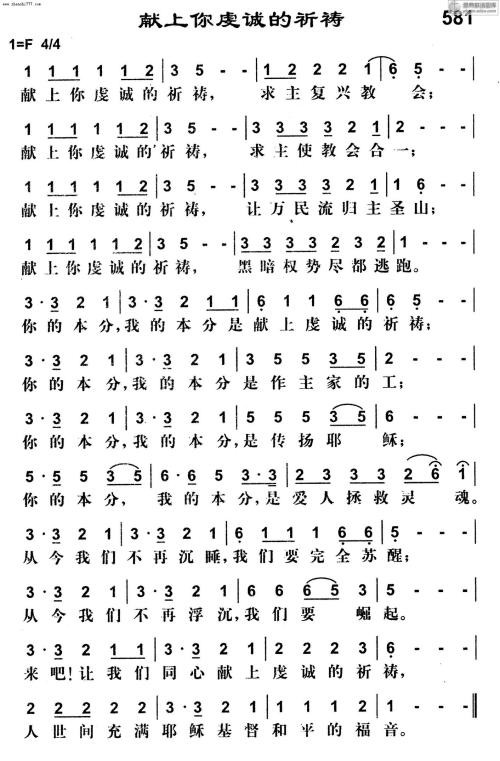 www.zhaoshi777.com
献上你虔诚的祈祷 581
1=F 4/4
1 11112|35--|1222(21|6)5--|
献上你虔诚的祈祷, 求主复兴教会;
1 11112|35--|3333321|2---|
献上你虔诚的祈祷, 求主使教会合一;
1 11112|35--|333321|6---|
献上你虔诚的祈祷, 让万民流归主圣山;
1 11112|35--|3333322|1---|
献上你虔诚的祈祷, 黑暗权势尽都逃跑。
3·321|3·3211|611665|6---|
你的本分,我的本分是献上虔诚的祈祷;
3·321|3·321|355535|2---|
你的本分,我的本分是作主家的工;
3·321|3·321|555535|6---|
你的本分,我的本分,是传扬耶稣;
5·5535|6·653·3|333326|1---|
你的本分, 我的本分,是爱人拯救灵魂。
3·321|3·321|611166|5---|
从今我们不再沉睡,我们要完全苏醒;
3·321|3·321|66665|3---|
从今我们不再浮沉,我们要崛起。
3·3211|3·321|611665|6---|
来吧!让我们同心献上虔诚的祈祷,
22222|3·321|222216|1---‖
人世间充满耶稣基督和平的福音。